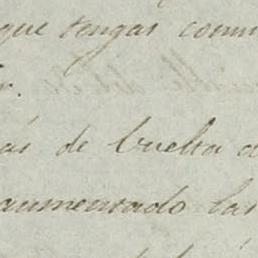 que tengas
r.
ás de vuelta a
aumentado las